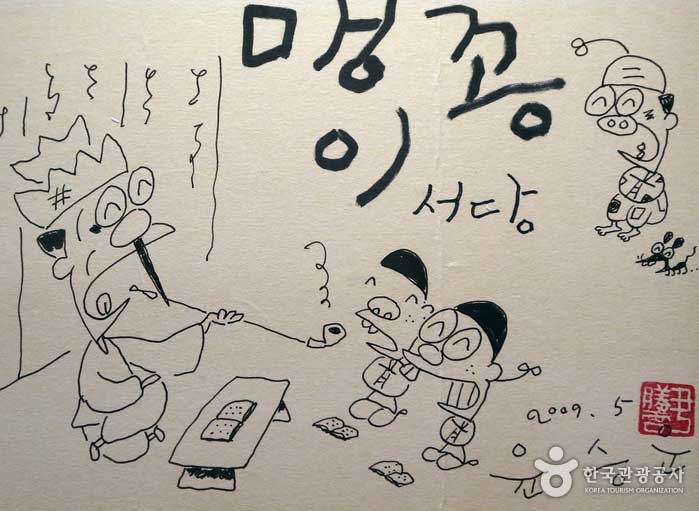 맹꽁이
서당
2009. 5
윤승운
한국관광공사
KOREA TOURISM ORGANIZATION